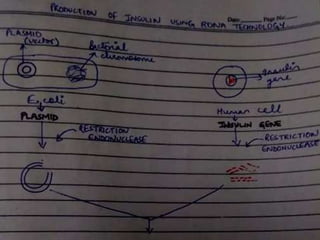 PRODUCTION OF INSULIN USING RDNA TECHNOLOGY
Date Page No.
PLASMID
(vector)
bacterial
chromosome
Insulin
gene
E.coli
PLASMID
RESTRICTION
ENDONUCLEASE
Human cell
INSULIN GENE
RESTRICTION
ENDONUCLEASE